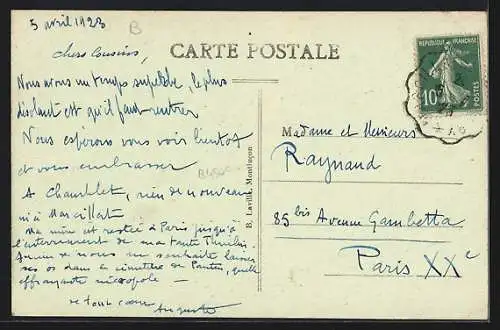 5 avril 1923
B
chers Cousins,
CARTE POSTALE
Nous avons un temps superbe, le plus
déplaisant est qu'il faut rentrer
Nous espérons vous voir bientôt
et vous embrasser
A Chamblet, rien de nouveau
ni à Marcillat
Ma mère est restée à Paris jusqu'à
l'enterrement de ma tante
de nous ne souhaite laisser
ses os dans le cimetière de Pantin, quelle
effrayante nécropole —
de tout cœur
Auguste
B. Lavillé, Montluçon
REPUBLIQUE FRANÇAISE
10
POSTES
Madame et Messieurs
Raynaud
85 bis Avenue Gambetta
Paris XXe